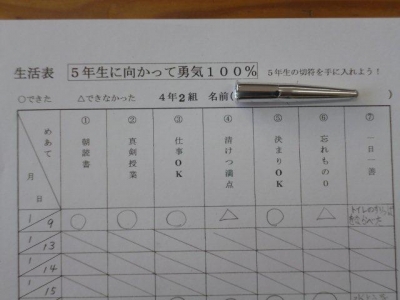 生活表 5年生に向かって勇気100% 5年生の切符を手に入れよう!
○できた △できなかった 4年2組 名前( )
めあて ① ② ③ ④ ⑤ ⑥ ⑦
朝読書 真剣授業 仕事OK 清けつ満点 決まりOK 忘れもの0 一日一善
月 日
1/9 ○ ○ ○ △ ○ △
1/13
1/14
1/15